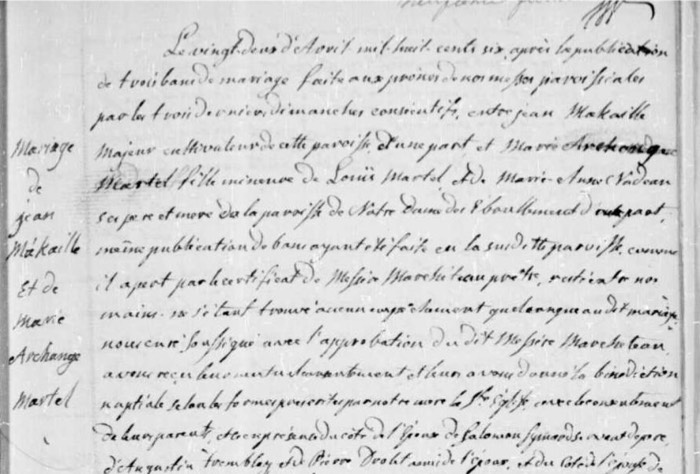 Le vingt-deux d'Avril mil-huit-cents six après la publication
de trois bans de mariage faite aux prônes de nos messes paroissiales
par les trois derniers dimanches consécutifs, entre jean Makaille
majeur cultivateur de cette paroisse, d'une part et Marie Archange
Martel, fille mineure de Loüis Martel et de Marie-Anne Nadeau
ses pere et mere de la paroisse de Notre Dame des Eboullements d'autre part,
même publication de bans ayant été faite en la susditte paroisse, comme
il apert par le certificat de Messire Marcheteau prêtre, resté entre nos
mains. ne s'étant trouvé aucun empêchement quelconque au dit mariage
nous curé soussigné avec l'approbation du dit Messire Marcheteau,
avons reçu leur mutuel consentement et leurs avons donné la bénédiction
nuptiale selon les formes prescrites par notre mere la Ste Eglise, avec le consentement
de leurs parents, et en présence du côté de l'Epoux de Salomon
d'Augustin Tremblay et de Pierre Drolet ami de l'époux, et du côté de l'épouse de
Mariage
de
jean
Makaille
Et de
Marie
Archange
Martel